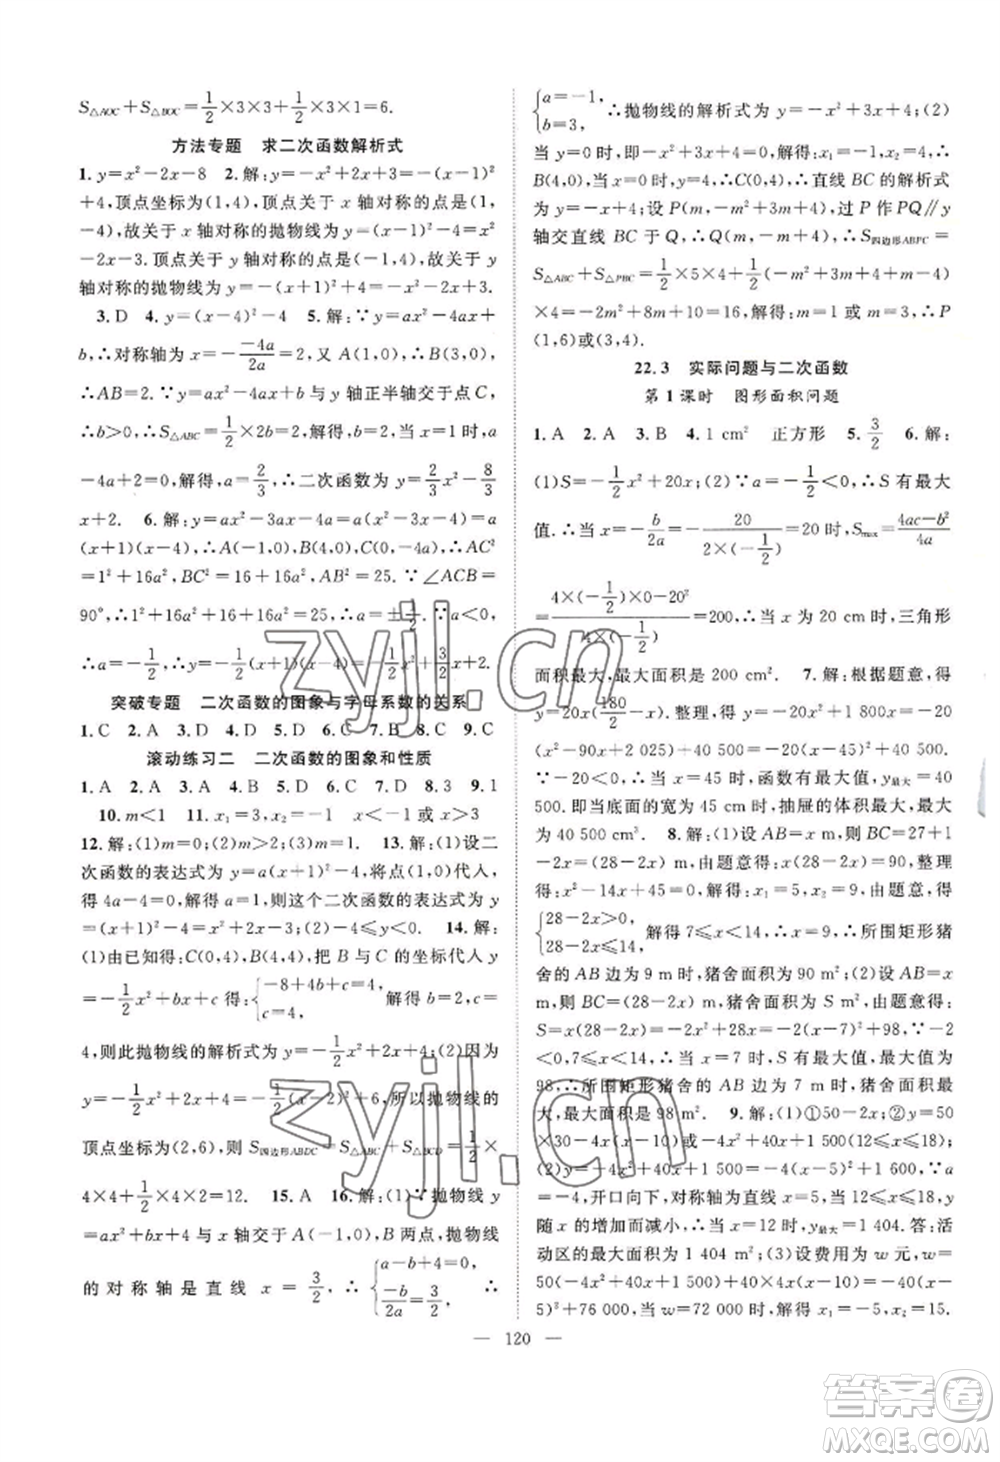 S△AOC+S△BOC=1/2×3×3+1/2×3×1=6.
方法专题 求二次函数解析式
1. y=x²-2x-8 2. 解:y=-x²+2x+3=-(x-1)²
+4,顶点坐标为(1,4),故关于 x 轴对称的点是(1,
-4),故关于 x 轴对称的抛物线为 y=(x-1)²-4=x²
-2x-3. 顶点关于 y 轴对称的点是(-1,4),故关于 y
轴对称的抛物线为 y=-(x+1)²+4=-x²-2x+3.
3. D 4. y=(x-4)²-4 5. 解:∵y=ax²-4ax+
b,∴对称轴为 x=-(-4a)/2a=2,又∵A(1,0),∴B(3,0),
∴AB=2. ∵y=ax²-4ax+b 与 y 轴正半轴交于点 C,
∴b>0,∴S△ABC=1/2×2b=2,解得,b=2,当 x=1 时,a
-4a+2=0,解得,a=2/3,∴二次函数为 y=2/3x²-8/3
x+2. 6. 解:y=ax²-3ax-4a=a(x²-3x-4)=a
(x+1)(x-4),∴A(-1,0),B(4,0),C(0,-4a),∴AC²
=1²+16a²,BC²=4²+16a²,AB²=25. ∵∠ACB=
90°,∴1²+16a²+4²+16a²=25,∴a=±1/2,∵a<0,
∴a=-1/2,∴y=-1/2(x+1)(x-4)=-1/2x²+3/2x+2.
突破专题 二次函数的图象与字母系数的关系
1. C 2. A 3. D 4. A 5. D 6. C 7. C 8. D 9. C
滚动练习二 二次函数的图象和性质
1. A 2. A 3. A 4. B 5. D 6. B 7. 3 8. 3 9. 1
10. m<1 11. x₁=3,x₂=-1 x<-1 或 x>3
12. 解:(1)m=0;(2)m>-2. 13. 解:(1)设二
次函数的表达式为 y=a(x-3)²-4,将点(1,0)代人,
得 4a-4=0,解得 a=1,则这个二次函数的表达式为 y
=(x-3)²-4;(2)-4≤y<0. 14. 解:
(1)由已知得:C(0,4),B(4,4),把 B 与 C 的坐标代人 y
=-1/2x²+bx+c 得:{-8+4b+c=4, c=4, 解得:b=2,c=
4,则此抛物线的解析式为 y=-1/2x²+2x+4;(2)因为 y
=-1/2x²+2x+4=-1/2(x-2)²+6,所以抛物线的
顶点坐标为(2,6),则 S四边形ABDC=S△ABC+S△BCD=1/2×
4×4+1/2×4×2=12. 15. A 16. 解:(1)∵抛物线 y
=ax²+bx+4 与 x 轴交于 A(-1,0)、B 两点,抛物线
的对称轴是直线 x=3/2,∴{a-b+4=0, -b/2a=3/2,∴
{a=-1, b=3, ∴抛物线的解析式为 y=-x²+3x+4;(2)
当 y=0 时,即-x²+3x+4=0,解得:x₁=-1,x₂=4,∴
B(4,0). 当 x=0 时,y=4,∴C(0,4),∴直线 BC 的解析式
为 y=-x+4;设 P(m,-m²+3m+4),过 P 作 PQ∥y
轴交直线 BC 于 Q,∴Q(m,-m+4),∴S四边形ABPC=
S△ABC+S△PBC=1/2×5×4+1/2(-m²+3m+4+m-4)
×4=-2m²+8m+10=16,解得:m₁=1,m₂=3,∴P
(1,6),(3,4).
22.3 实际问题与二次函数
第 1 课时 图形面积问题
1. A 2. A 3. B 4. 1 cm² 正方形 5. 3/2 6. 解:
(1)S=-1/2x²+20x;(2)∵a=-1/2<0,∴S 有最大
值. ∴当 x=-b/2a=-20/(2×(-1/2))=20 时,Smax=(4ac-b²)/4a
=(4×(-1/2)×0-20²)/(4×(-1/2))=200. ∴当 x 为 20 cm 时,三角形
面积最大,最大面积是 200 cm². 7. 解:根据题意,得
y=20x(180/2-x),整理,得 y=-20x²+1 800x=-20
(x²-90x+2 025)+40 500=-20(x-45)²+40 500.
∵-20<0,∴当 x=45 时,函数有最大值,y最大=40
500. 即当底面的宽为 45 cm 时,抽屉的体积最大,最大
为 40 500 cm³. 8. 解:(1)设 AB=x m,则 BC=27+1-
2x=(28-2x)m,由题意得:x(28-2x)=90,整理
得:x²-14x+45=0,解得:x₁=5,x₂=9,由题意得:
{28-2x>0, 28-2x≤14, 解得 7≤x<14,∴x=9,∴所围矩形猪
舍的 AB 边为 9 m,猪舍面积为 90 m²;(2)设 AB=x
m,则 BC=(28-2x)m,猪舍面积为 S m²,由题意得:
S=x(28-2x)=-2x²+28x=-2(x-7)²+98,∵-2
<0,7≤x<14,∴当 x=7 时,S 有最大值,最大值为
98,∴所围矩形猪舍的 AB 边为 7 m 时,猪舍面积最
大,最大面积是 98 m². 9. 解:(1)①50-2x;②y=50
(2)y=-4x²+40x+1 500(12≤x≤20),∵a
=-4,开口向下,对称轴为直线 x=5,当 12≤x≤20,y
随 x 的增加而减小,∴当 x=12 时,y最大=1 404. 答:活
动区的最大面积为 1 404 m²;(3)设费用为 w 元,w=
5)²+76 000,当 w=72 000 时,解得 x₁=-5,x₂=15.
120
zyjl.cn
zyjl.cn
答案圈
MXQE.COM